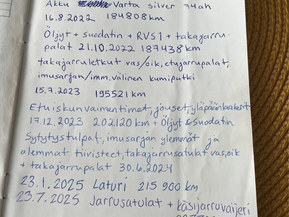 Akku Varta silver 74ah
16.8.2022 184808km
Öljyt + suodatin + RVS1 + takajarru-
palat 21.10.2022 187438km
takajarruletkut vas/oik, etujarrupalat,
imusarjan/imm.välinen kumiputki
15.7.2023 195521km
Etuiskunvaimentimet, jouset, yläpään
17.12.2023 202120km + Öljyt & Suodatin
Sytytystulpat, imusarjan ylemmät ja
alemmat tiivisteet, takajarrusatulat vas,oik
+ takajarrupalat 30.6.2024
23.1.2025 Laturi 215900 km
23.7.2025 Jarrusatulat + käsijarruvaijeri